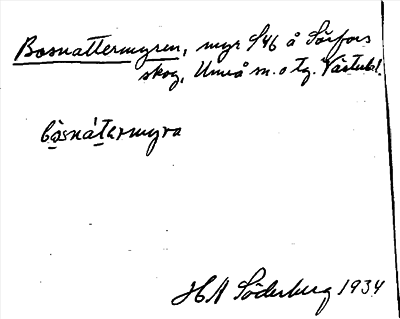 Bosnattermyren, myr S46 å Sörfors
skog, Umeå sn. o tg. Västerb.
bòsnátermyra
H A Söderberg 1934